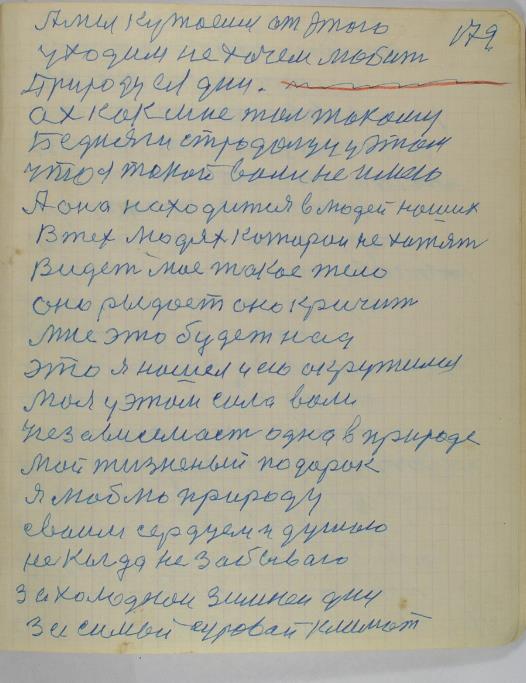 179
А мы кутоеши от этого
уходим не хочем любит
Природу ея дни.
ах как мне жал такому
Бедняги страдалцу у этом
что я такой воли не имею
А она находится в людей наших
В тех людях которои не хотят
Видет мое такое тело
оно рыдает оно кричит
мне это будет над
это я нашел и ею окружился
моя у этом сила воли
независемаст одна в природе
мой жизненый подарок
я люблю природу
своим сердцем и душою
не когда не забываю
за холоднои зимнеи дни
за самый суровай климат